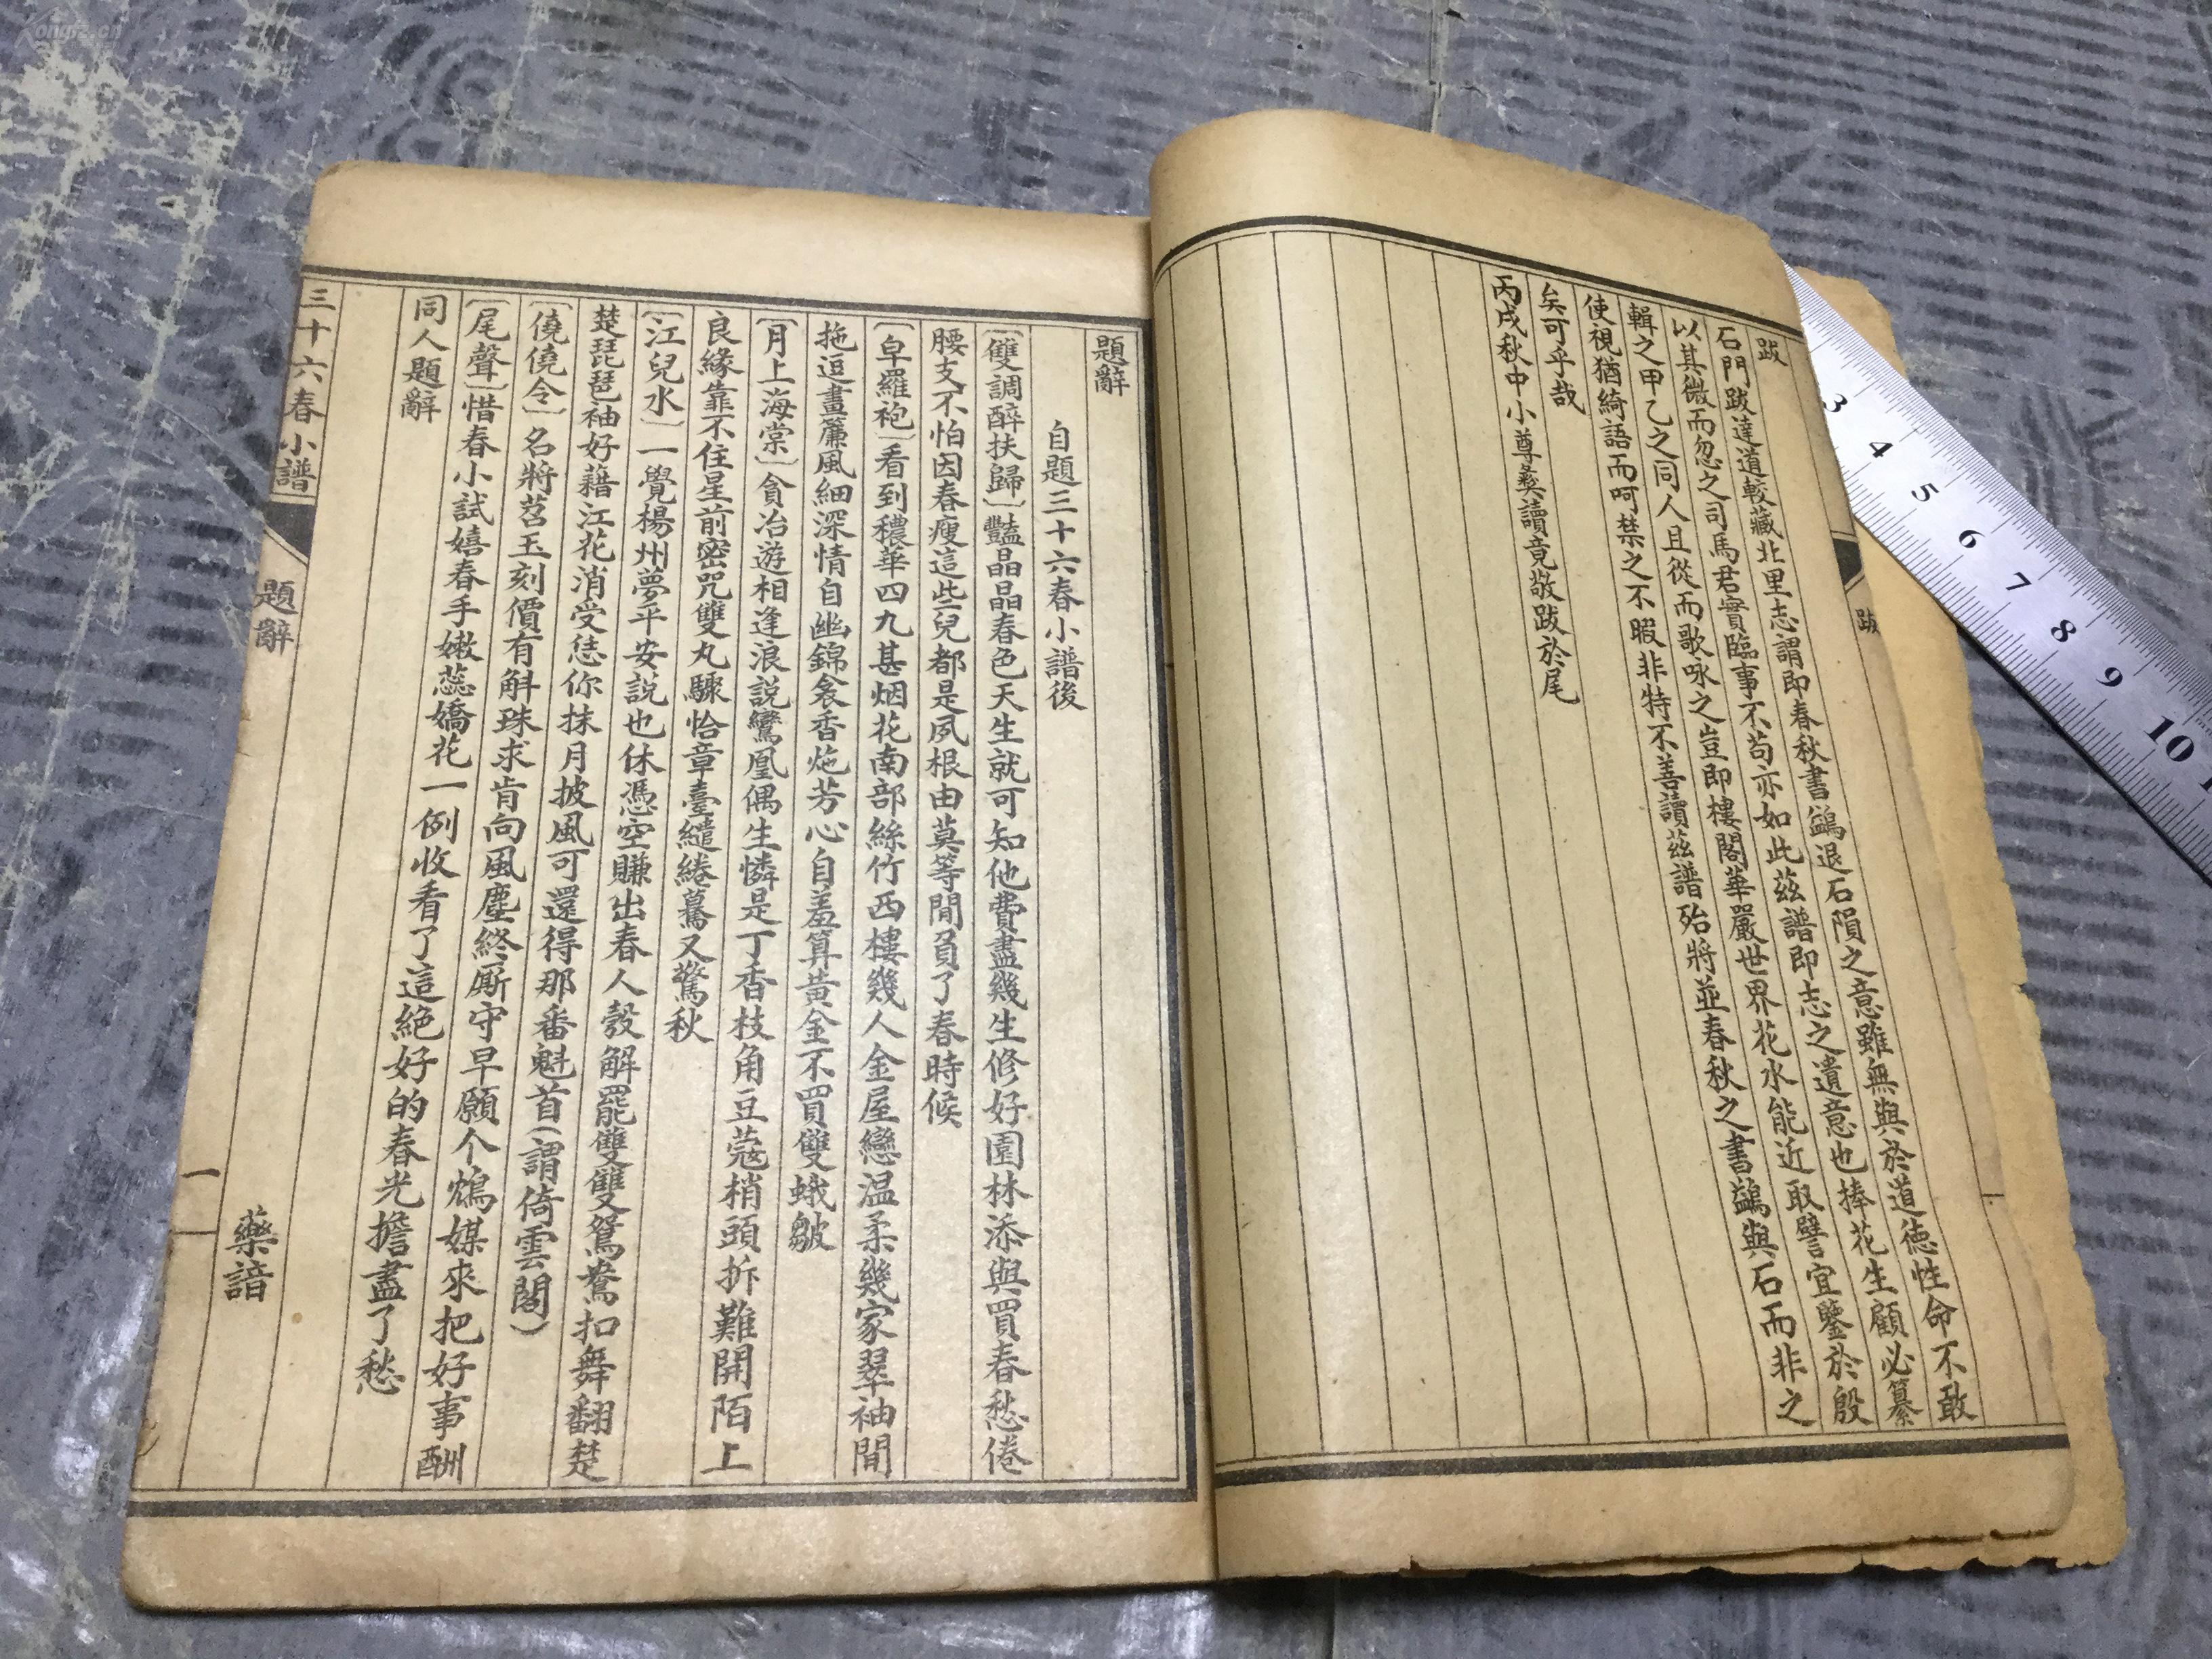 跋
石門跋達道較藏北里志謂即春秋書鷁退石隕之意雖無與於道德性命不敢
以其微而忽之司馬君實臨事不苟亦如此茲譜即志之遺意也捧花生顧必纂
輯之甲乙之同人且從而歌咏之豈即樓閣華嚴世界花水能近取譬宜鑒於殷
使視猶綺語而呵禁之不暇非特不善讀茲譜殆將並春秋之書鷁與石而非之
矣可乎哉
丙戌秋中小尊彝讀竟敬跋於尾
跋
題辭
自題三十六春小譜後
〔雙調醉扶歸〕豔晶晶春色天生就可知他費盡幾生修好園林添與買春愁倦
腰支不怕因春瘦這些兒都是夙根由莫等閒負了春時候
〔皁羅袍〕看到穠華四九甚烟花南部絲竹西樓幾人金屋戀温柔幾家翠袖閒
拖逗畫簾風細深情自幽錦衾香灺芳心自羞算黃金不買雙蛾皺
〔月上海棠〕貪冶遊相逢浪說鸞凰偶生憐是丁香枝角豆蔻梢頭拆難開陌上
良緣靠不住星前密咒雙丸驟恰章臺繾綣驀又驚秋
〔江兒水〕一覺楊州夢平安說也休憑空賺出春人彀解罷雙雙鴛鴦扣舞翻楚
楚琵琶袖好藉江花消受恁你抹月披風可還得那番魁首（謂倚雲閣）
〔僥僥令〕名將苕玉刻價有斛珠求肯向風塵終厮守早願个鴆媒來把好事酬
〔尾聲〕惜春小試嬉春手嫩蕊嬌花一例收看了這絕好的春光擔盡了愁
同人題辭
藥諳
三十六春小譜
題辭
一
3 4 5 6 7 8 9 10